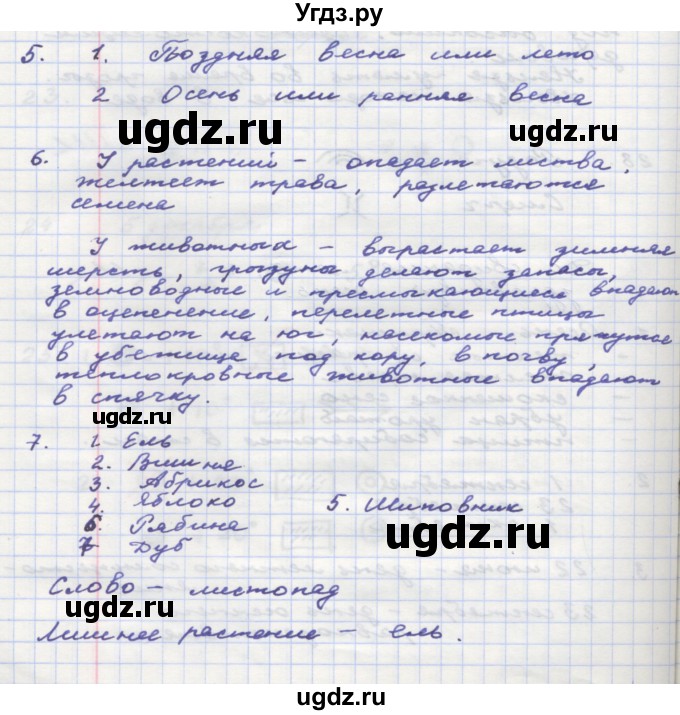 Угдз.ру
5. 1. Поздняя весна или лето
2 Осень или ранняя весна
ugdz.ru ugdz.ru
6. У растений - опадает листва,
желтеет трава, разлетаются
семена
У животных - вырастает зимняя
шерсть, грызуны делают запасы,
земноводные и пресмыкающиеся впадают
в оцепенение, перелетные птицы
улетают на юг, насекомые прячутся
в убежища под кору, в почву,
теплокровные животные впадают
в спячку.
ugdz.ru
7. 1. Ель
2. Вишня
3. Абрикос
4. Яблоко 5. Шиповник
6. Рябина
7 Дуб
ugdz.ru
Слово - листопад
ugdz.ru
Лишнее растение - ель.
ugdz.ru
ugdz.ru